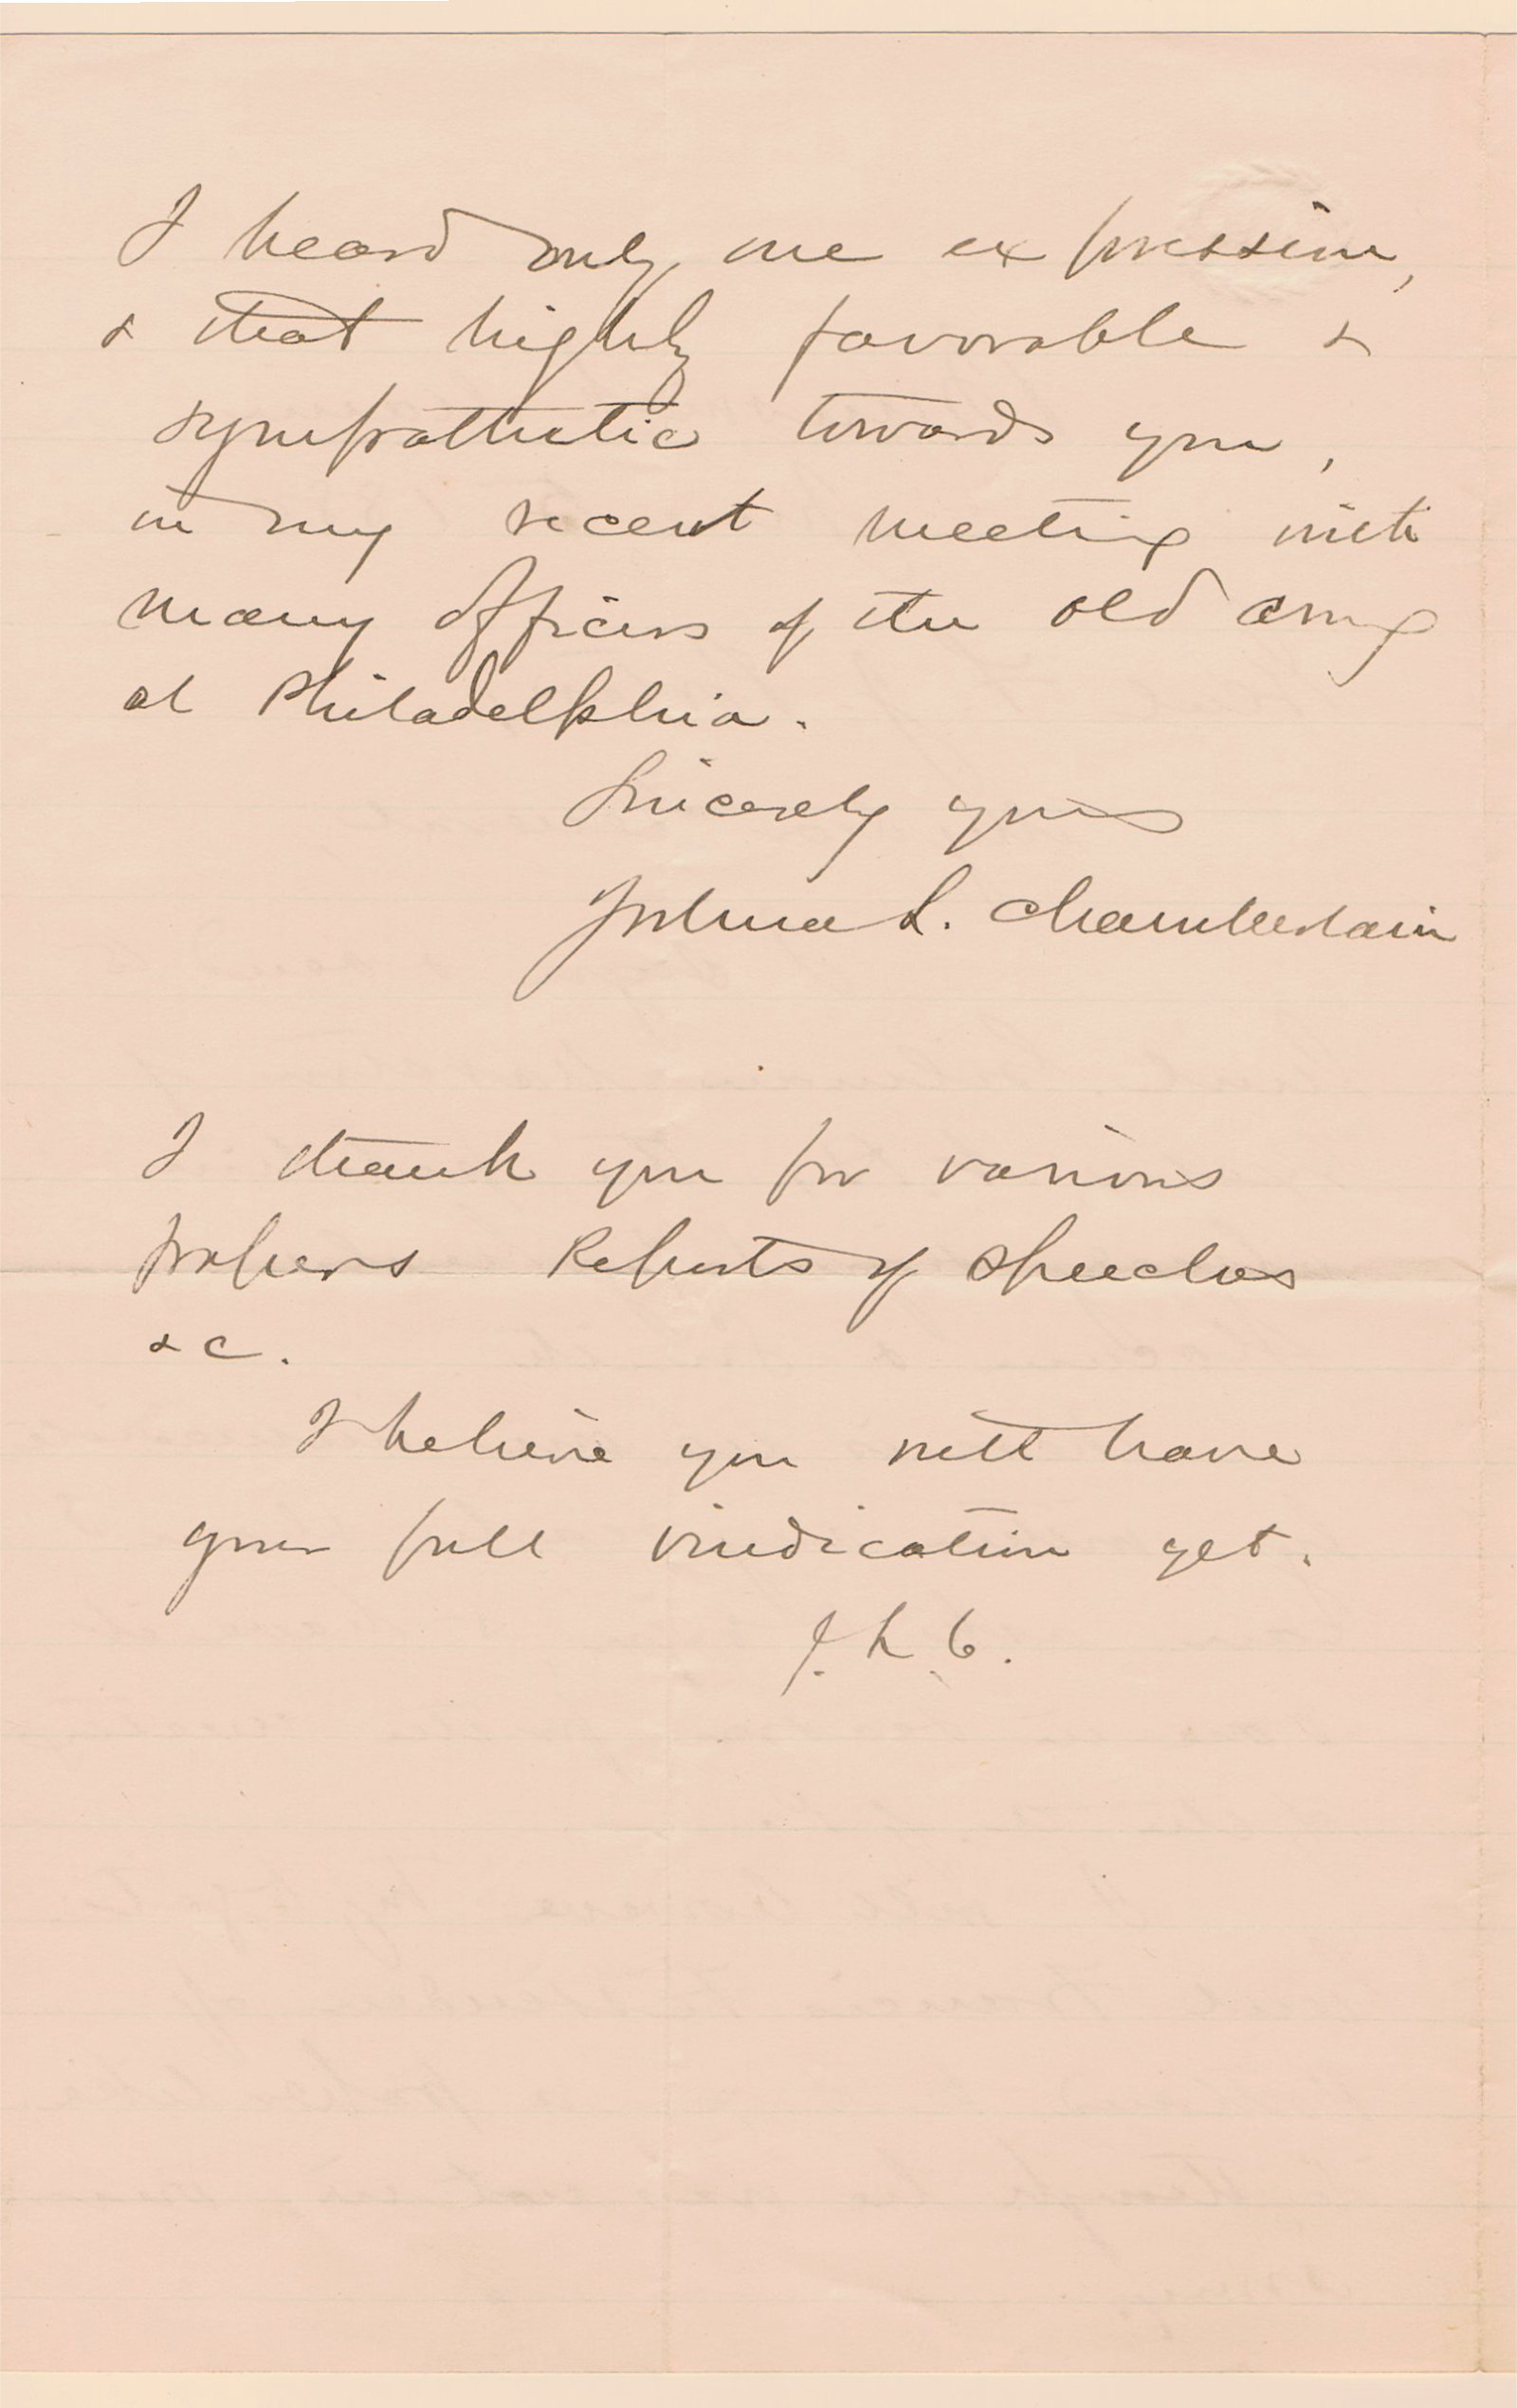 I heard only one expression,
& that highly favorable &
sympathetic towards you,
in my recent meeting with
many officers of the old army
at Philadelphia.
Sincerely yours
Joshua L. Chamberlain
I thank you for various
papers Reports of speeches
&c.
I believe you will have
your full vindication yet.
J. L. C.